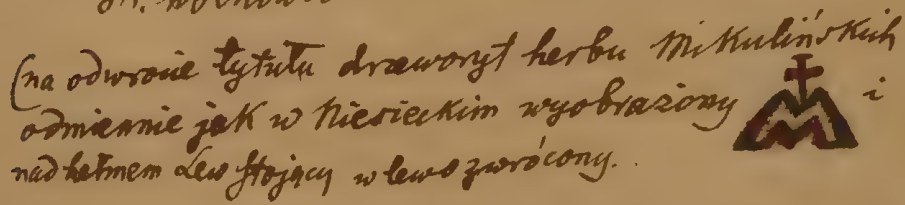 (na odwrocie tytułu drzeworyt herbu Mikulińskich
odmiennie jak w Niesieckim wyobrażony i
nad hełmem Lew stojący w lewo zwrócony.